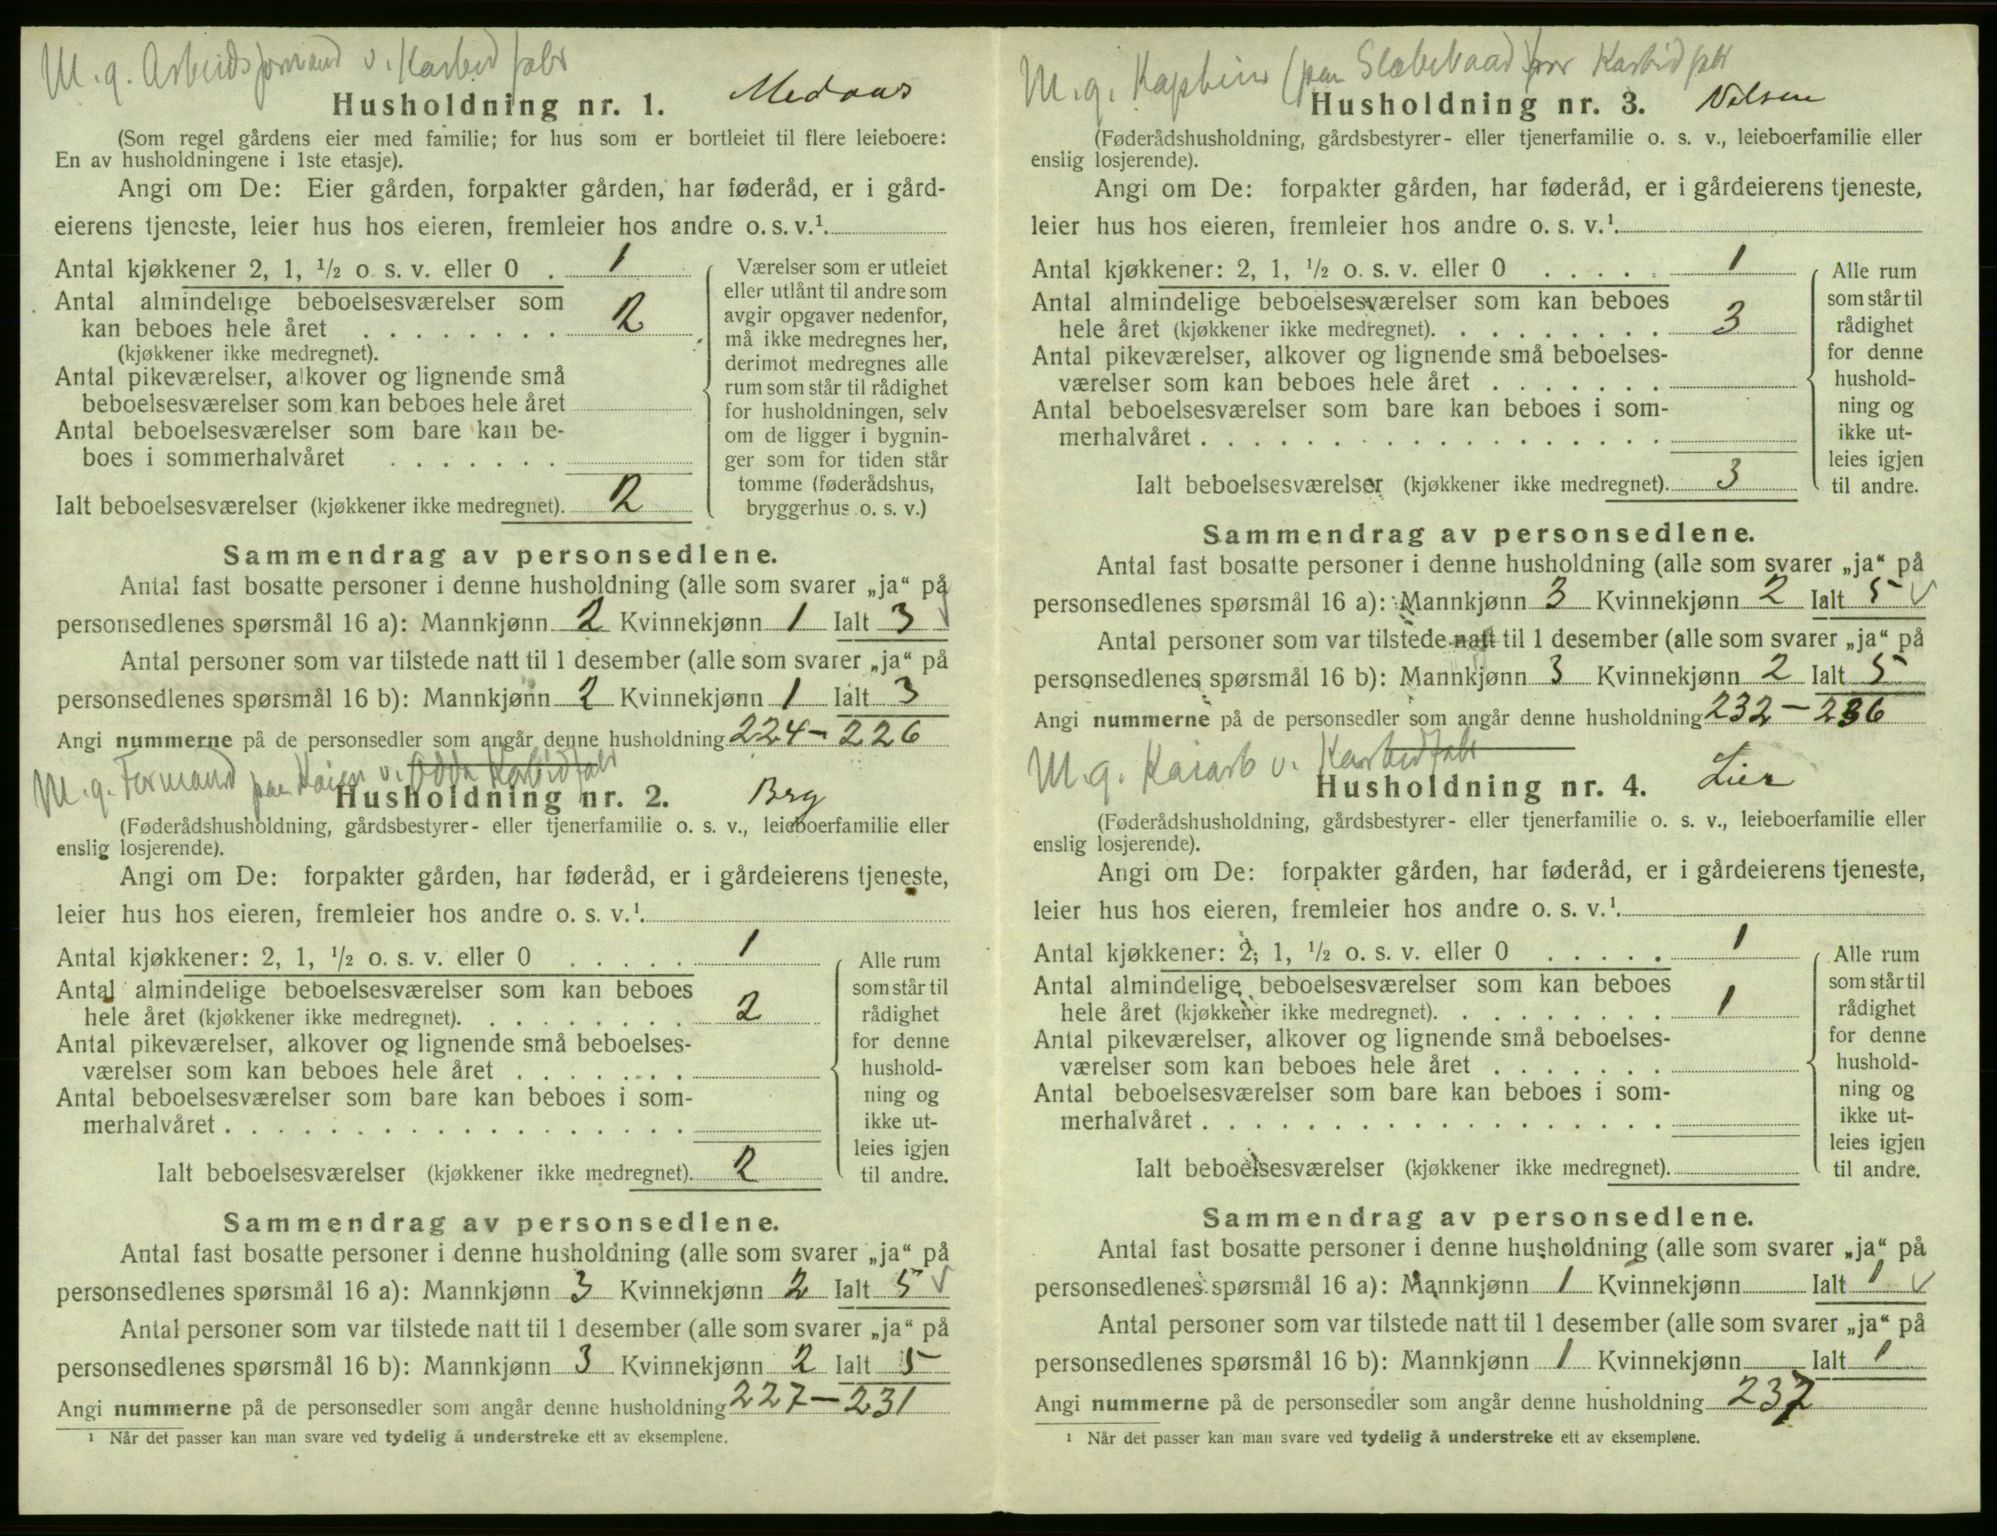 M. g. Arbeidsformand v. Karbid fabr
Husholdning nr. 1. Medaas
(Som regel gårdens eier med familie; for hus som er bortleiet til flere leieboere:
En av husholdningene i 1ste etasje).
Angi om De: Eier gården, forpakter gården, har føderåd, er i gård-
eierens tjeneste, leier hus hos eieren, fremleier hos andre o. s. v.¹
Antal kjøkkener 2, 1, ½ o. s. v. eller 0 . 1
Antal almindelige beboelsesværelser som
kan beboes hele året . . . . . . . 2
(kjøkkener ikke medregnet).
Antal pikeværelser, alkover og lignende små
beboelsesværelser som kan beboes hele året
Antal beboelsesværelser som bare kan be-
boes i sommerhalvåret . . . . . . .
Ialt beboelsesværelser (kjøkkener ikke medregnet). 2
Værelser som er utleiet
eller utlånt til andre som
avgir opgaver nedenfor,
må ikke medregnes her,
derimot medregnes alle
rum som står til rådighet
for husholdningen, selv
om de ligger i bygnin-
ger som for tiden står
tomme (føderådshus,
bryggerhus o. s. v.)
Sammendrag av personsedlene.
Antal fast bosatte personer i denne husholdning (alle som svarer „ja“ på
personsedlenes spørsmål 16 a): Mannkjønn 2 Kvinnekjønn 1 Ialt 3 ✓
Antal personer som var tilstede natt til 1 desember (alle som svarer „ja“ på
personsedlenes spørsmål 16 b): Mannkjønn 2 Kvinnekjønn 1 Ialt 3
Angi nummerne på de personsedler som angår denne husholdning 224 – 226
M. g. Formand paa Kaien v. Odda Karbidfabr
Husholdning nr. 2. Berg
(Føderådshusholdning, gårdsbestyrer- eller tjenerfamilie o. s. v., leieboerfamilie eller
enslig losjerende).
Angi om De: forpakter gården, har føderåd, er i gårdeierens tjeneste,
leier hus hos eieren, fremleier hos andre o. s. v.¹
Antal kjøkkener: 2, 1, ½ o. s. v. eller 0 . . . . . 1
Antal almindelige beboelsesværelser som kan beboes
hele året (kjøkkener ikke medregnet). . . . . . . . 2
Antal pikeværelser, alkover og lignende små beboelses-
værelser som kan beboes hele året . . . . . . .
Antal beboelsesværelser som bare kan beboes i som-
merhalvåret . . . . . . . . . . . . . . . . .
Ialt beboelsesværelser (kjøkkener ikke medregnet). 2
Alle rum
som står til
rådighet
for denne
hushold-
ning og
ikke ut-
leies igjen
til andre.
Sammendrag av personsedlene.
Antal fast bosatte personer i denne husholdning (alle som svarer „ja“ på
personsedlenes spørsmål 16 a): Mannkjønn 3 Kvinnekjønn 2 Ialt 5 ✓
Antal personer som var tilstede natt til 1 desember (alle som svarer „ja“ på
personsedlenes spørsmål 16 b): Mannkjønn 3 Kvinnekjønn 2 Ialt 5
Angi nummerne på de personsedler som angår denne husholdning 227 – 231
¹ Når det passer kan man svare ved tydelig å understreke ett av eksemplene.
M. g. Kaptein (paa Slæbebaad) for Karbid fabr
Husholdning nr. 3. Nilsen
(Føderådshusholdning, gårdsbestyrer- eller tjenerfamilie o. s. v., leieboerfamilie eller
enslig losjerende).
Angi om De: forpakter gården, har føderåd, er i gårdeierens tjeneste,
leier hus hos eieren, fremleier hos andre o. s. v.¹
Antal kjøkkener: 2, 1, ½ o. s. v. eller 0 . . . . . 1
Antal almindelige beboelsesværelser som kan beboes
hele året (kjøkkener ikke medregnet). . . . . . . . 3
Antal pikeværelser, alkover og lignende små beboelses-
værelser som kan beboes hele året . . . . . . .
Antal beboelsesværelser som bare kan beboes i som-
merhalvåret . . . . . . . . . . . . . . . . .
Ialt beboelsesværelser (kjøkkener ikke medregnet). 3
Alle rum
som står til
rådighet
for denne
hushold-
ning og
ikke ut-
leies igjen
til andre.
Sammendrag av personsedlene.
Antal fast bosatte personer i denne husholdning (alle som svarer „ja“ på
personsedlenes spørsmål 16 a): Mannkjønn 3 Kvinnekjønn 2 Ialt 5 ✓
Antal personer som var tilstede natt til 1 desember (alle som svarer „ja“ på
personsedlenes spørsmål 16 b): Mannkjønn 3 Kvinnekjønn 2 Ialt 5
Angi nummerne på de personsedler som angår denne husholdning 232 – 236
M. g. Kaiarb v. Karbidfabr
Husholdning nr. 4. Lier
(Føderådshusholdning, gårdsbestyrer- eller tjenerfamilie o. s. v., leieboerfamilie eller
enslig losjerende).
Angi om De: forpakter gården, har føderåd, er i gårdeierens tjeneste,
leier hus hos eieren, fremleier hos andre o. s. v.¹
Antal kjøkkener: 2, 1, ½ o. s. v. eller 0 . . . . . 1
Antal almindelige beboelsesværelser som kan beboes
hele året (kjøkkener ikke medregnet). . . . . . . . 1
Antal pikeværelser, alkover og lignende små beboelses-
værelser som kan beboes hele året . . . . . . .
Antal beboelsesværelser som bare kan beboes i som-
merhalvåret . . . . . . . . . . . . . . . . .
Ialt beboelsesværelser (kjøkkener ikke medregnet).
Alle rum
som står til
rådighet
for denne
hushold-
ning og
ikke ut-
leies igjen
til andre.
Sammendrag av personsedlene.
Antal fast bosatte personer i denne husholdning (alle som svarer „ja“ på
personsedlenes spørsmål 16 a): Mannkjønn 1 Kvinnekjønn Ialt 1 ✓
Antal personer som var tilstede natt til 1 desember (alle som svarer „ja“ på
personsedlenes spørsmål 16 b): Mannkjønn 1 Kvinnekjønn Ialt 1
Angi nummerne på de personsedler som angår denne husholdning 237
¹ Når det passer kan man svare ved tydelig å understreke ett av eksemplene.